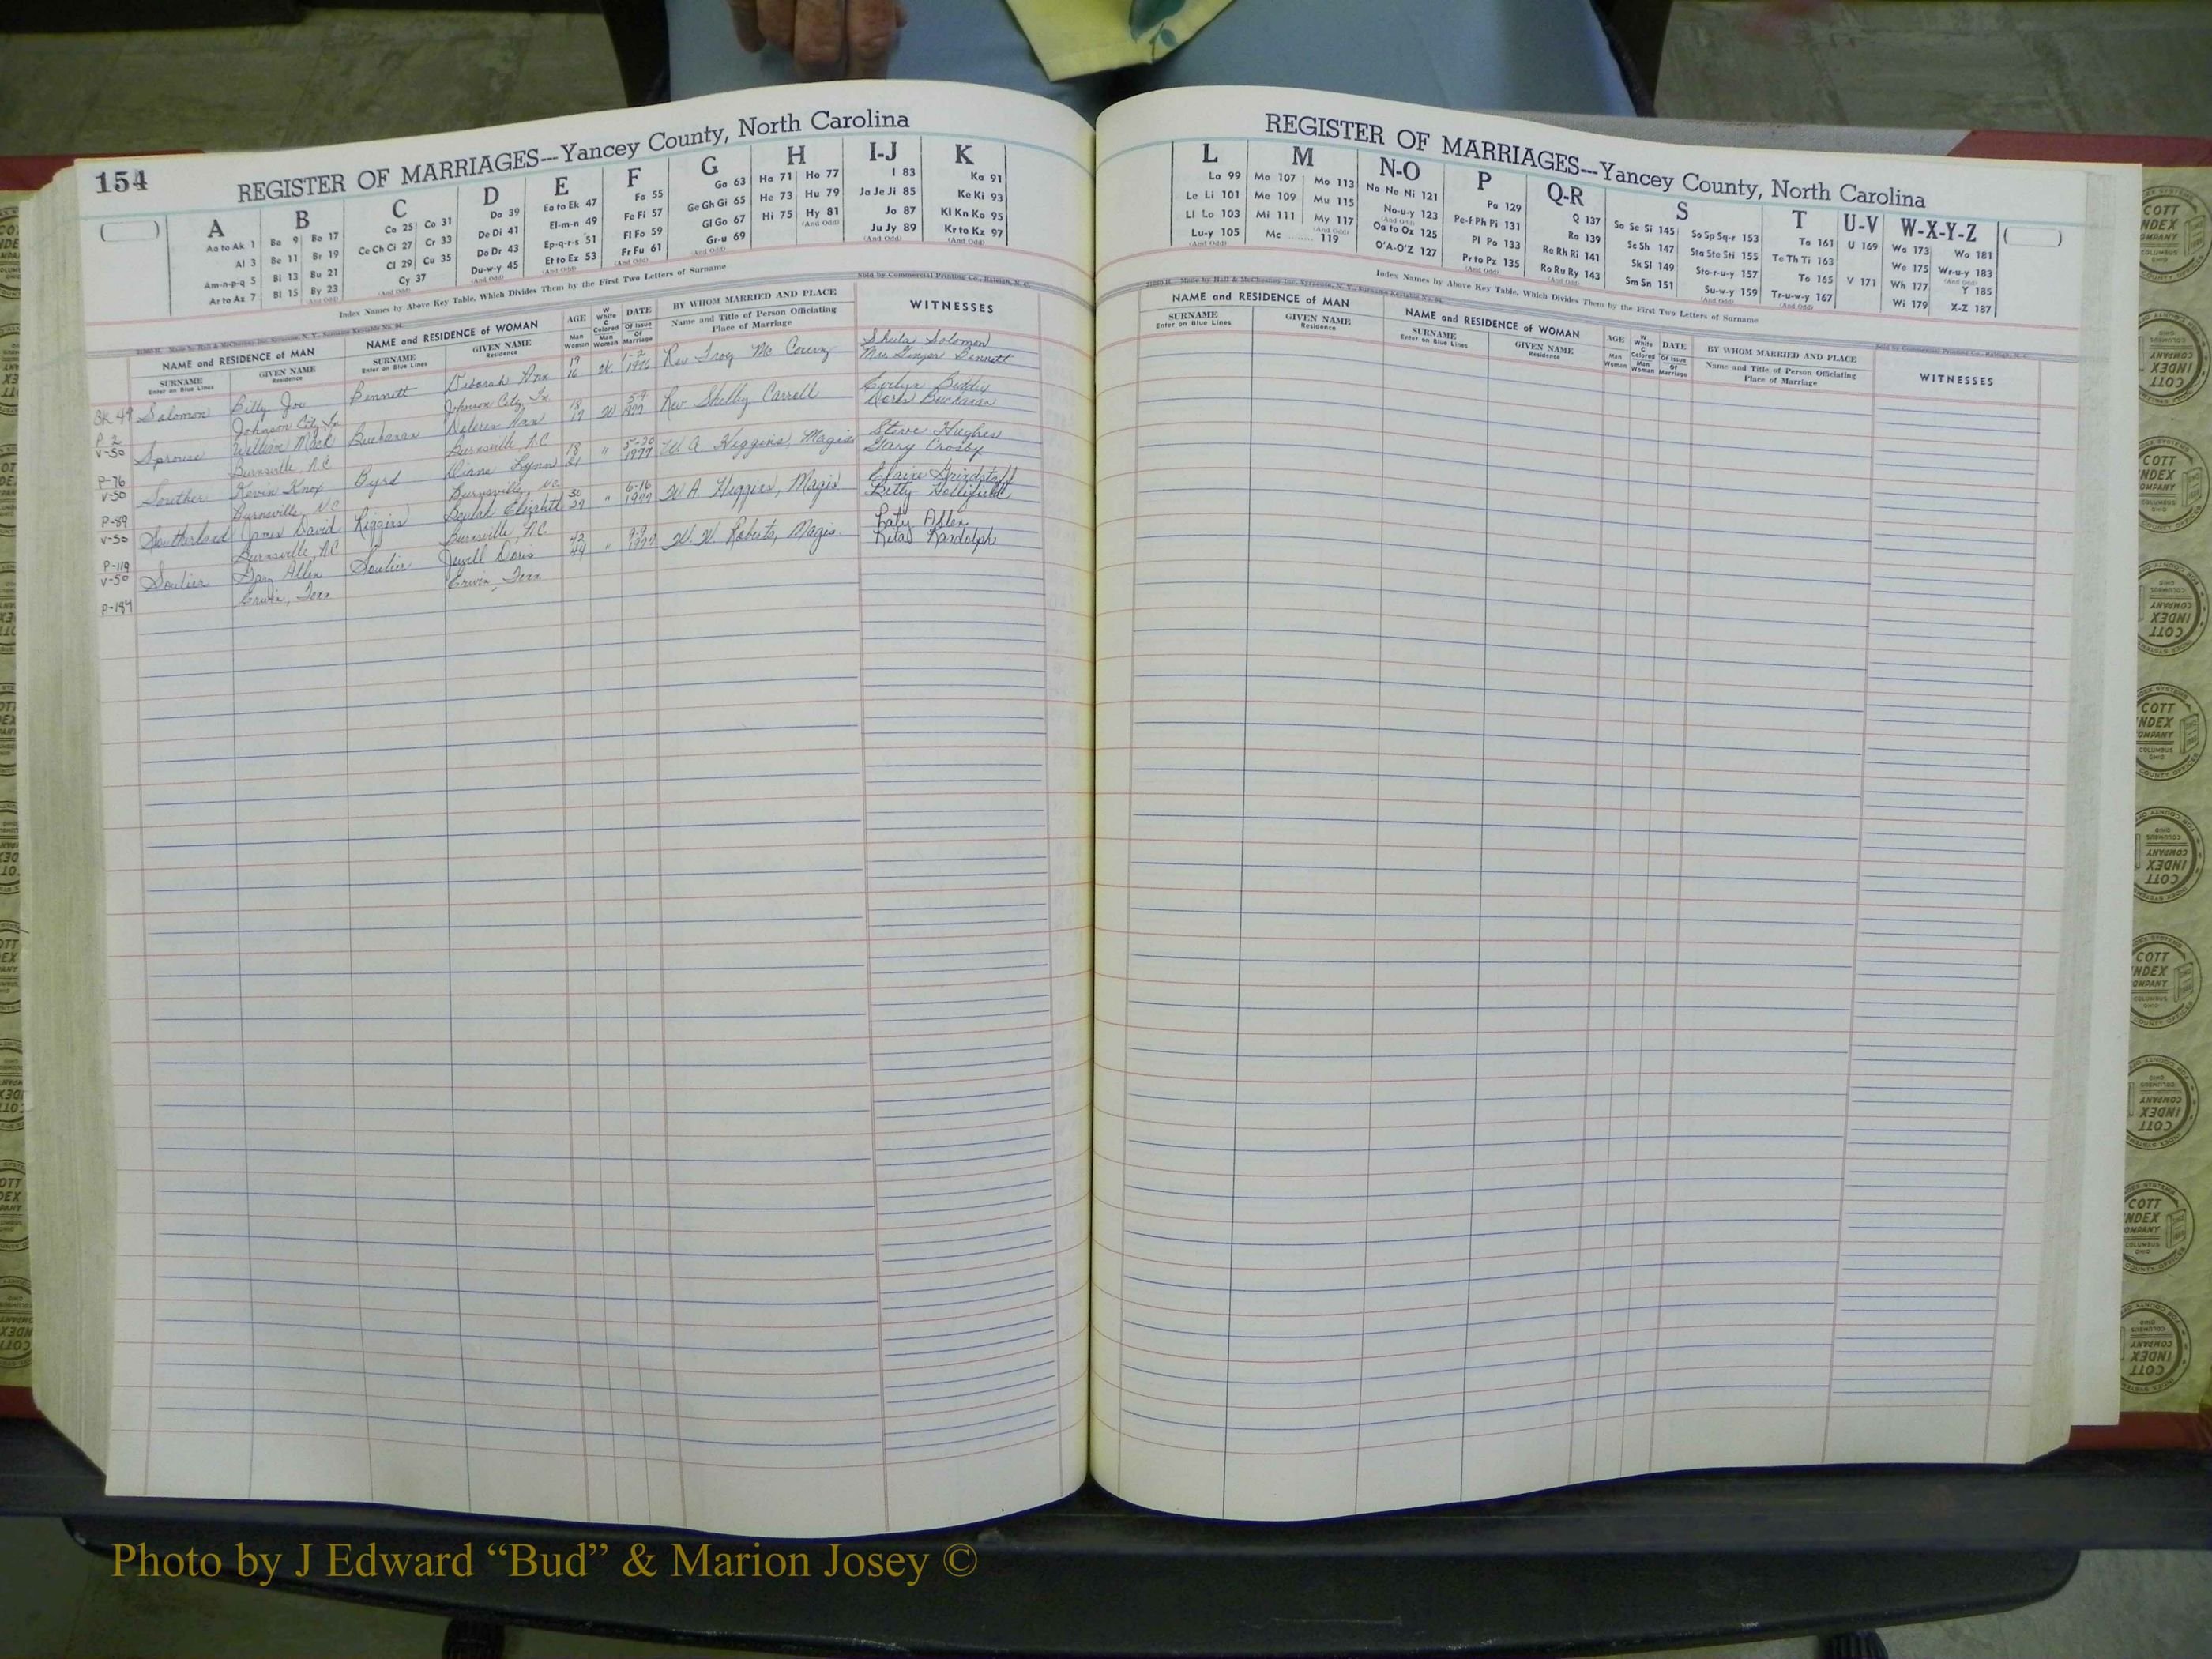 154
REGISTER OF MARRIAGES---Yancey County, North Carolina
A B C D E F G H I-J K
Aa to Ak 1 Ba 9 Bo 17 Ca 25 Co 31 Da 39 Ea to Ek 47 Fa 55 Ga 63 Ha 71 Ho 77 I 83 Ka 91
Al 3 Be 11 Br 19 Ce Ch Ci 27 Cr 33 De Di 41 El-m-n 49 Fe Fi 57 Ge Gh Gi 65 He 73 Hu 79 Ja Je Ji 85 Ke Ki 93
Am-n-p-q 5 Bi 13 Bu 21 Cl 29 Cu 35 Do Dr 43 Ep-q-r-s 51 Fl Fo 59 Gl Go 67 Hi 75 Hy 81 Jo 87 Kl Kn Ko 95
Ar to Az 7 Bl 15 By 23 Cy 37 Du-w-y 45 Et to Ez 53 Fr Fu 61 Gr-u 69 (And Odd) Ju Jy 89 Kr to Kz 97
Index Names by Above Key Table, Which Divides Them by the First Two Letters of Surname
Sold by Commercial Printing Co., Raleigh, N. C.
NAME and RESIDENCE of MAN NAME and RESIDENCE of WOMAN AGE W White C Colored DATE BY WHOM MARRIED AND PLACE WITNESSES
SURNAME Enter on Blue Lines GIVEN NAME Residence SURNAME Enter on Blue Lines GIVEN NAME Residence Man Woman Man Woman Of Issue Of Marriage Name and Title of Person Officiating Place of Marriage
Bk 49 Solomon Billy Joe Bennett Deborah Ann 19 W. 1-2 Rev Troy Mc Shula Solomon
P-2 Johnson City, Johnson City, 16 1976 Mrs Bennett
V-50 Sprouse William Mack Buchanan Ann 18 W 5-9 Rev. Shelby Carroll Evelyn
P-76 Burnsville, N.C Burnsville, N.C 17 1977 Buchanan
V-50 Souther Kevin Knox Byrd Diane Lynn 18 " 5-30 W. A. Higgins, Magis Steve Hughes
P-89 Burnsville, N.C Burnsville, N.C. 21 1977 Gary Crosby
V-50 Southerland James David Riggins Beulah Elizabeth 30 " 6-16 W A Higgins, Magis
P-119 Burnsville, N.C Burnsville, N.C. 1977 Betty Hollifield
V-50 Allen Jewell Doris 42 " 9-9 W. W. Roberts, Magis.
P-184 Erwin, Tenn Erwin, Tenn 44 1977 Randolph
REGISTER OF MARRIAGES---Yancey County, North Carolina
L M N-O P Q-R S T U-V W-X-Y-Z
La 99 Ma 107 Mo 113 Na Ne Ni 121 Pa 129 Q 137 Sa Se Si 145 So Sp Sq-r 153 Ta 161 U 169 Wa 173 Wo 181
Le Li 101 Me 109 Mu 115 No-u-y 123 Pe-f Ph Pi 131 Ra 139 Sc Sh 147 Sta Ste Sti 155 Te Th Ti 163 We 175 Wr-u-y 183
Ll Lo 103 Mi 111 My 117 Oa to Oz 125 Pl Po 133 Re Rh Ri 141 Sk Sl 149 Sto-r-u-y 157 To 165 V 171 Wh 177 Y 185
Lu-y 105 Mc 119 O'A-O'Z 127 Pr to Pz 135 Ro Ru Ry 143 Sm Sn 151 Su-w-y 159 Tr-u-w-y 167 Wi 179 X-Z 187
Index Names by Above Key Table, Which Divides Them by the First Two Letters of Surname
NAME and RESIDENCE OF MAN NAME and RESIDENCE OF WOMAN AGE W White C Colored DATE BY WHOM MARRIED AND PLACE WITNESSES
SURNAME Enter on Blue Lines GIVEN NAME Residence SURNAME Enter on Blue Lines GIVEN NAME Residence Man Woman Man Woman Of Issue Of Marriage Name and Title of Person Officiating Place of Marriage
COTT INDEX COMPANY COLUMBUS OHIO
Photo by J Edward “Bud” & Marion Josey ©